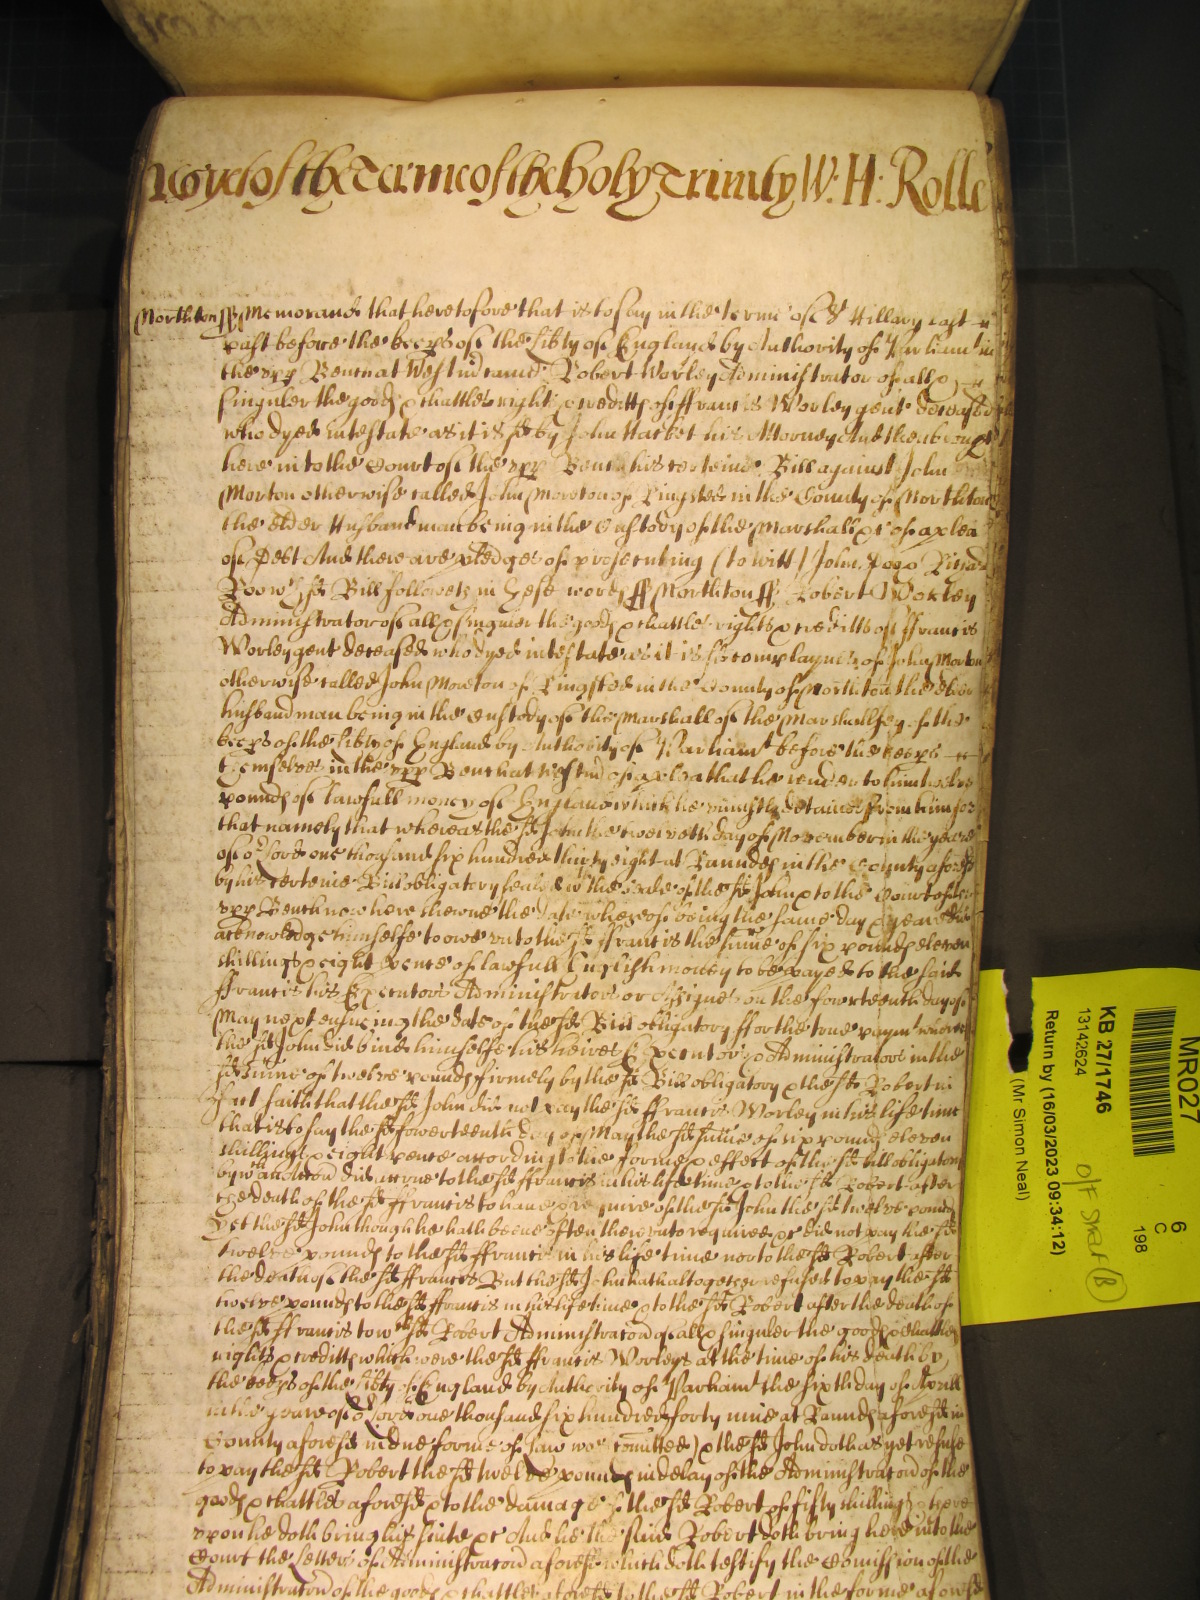 1651 yet of the Terme of the Holy Trinity W: H: Rolle
Northton ss Memorand that heretofore that is to say in the terme of St Hillary last
past before the keeps of the libty of England by Authority of Parliamt in
the upp Bench at Westm came Robert Worley Administrator of all &
singuler the goods & chattles rights & creditts of ffrancis Worley gent deceased
who dyed intestate as it is sd by John Harbet his Attorney And then brought
here into the Court of the upp Bench his certeine Bill against John
Morton otherwise called John Moreton of Ringsted in the County of Northton
the elder Husbandman being in the Custody of the Marshall &c of a plea
of Debt And there are pledges of prosecuting (to witt) John Richard
Roo wch sd Bill followeth in these words ss Northton ss Robert Worley
Administrator of all & singuler the goods & chattles rights & creditts of ffrancis
Worley gent deceased who dyed intestate as it is sd complayneth of John Morton
otherwise called John Moreton of Ringsted in the County of Northton the elder
husbandman being in the Custody of the Marshall of the Marshallsey of the
keeps of the libty of England by Authority of Parliamt before the keeps
themselves in the upp Bench at Westm of a plea that he render to him twelve
pounds of lawfull money of England which he uniustly detaines from him for
that namely that whereas the sd John the twelveth day of November in the yeare
of or Lord one thousand six hundred thirty eight at Raunds in the County aforesd
by his certeine Bill obligatory sealed wth the seale of the sd John & to the Court of the
upp Bench now here shewne the date whereof being the same day & yeare did
acknowledge himselfe to owe unto the sd ffrancis the summe of six pounds eleven
shillings & eight pence of lawfull English money to be payed to the said
ffrancis his Executors Administrators or Assignes on the fowrteenth day of
May next ensueing the date of the sd Bill obligatory ffor the true paymt whereof
the sd John did binde himselfe his heires Executors & Administrators in the
sd summe of twelve pounds firmely by the sd Bill obligatory & the sd Robert in
fact saith that the sd John did not pay the sd ffrancis Worley in his life time
that is to say the sd fowerteenth day of May the sd summe of six pounds eleven
shillings & eight pence according to the forme & effect of the sd bill obligatory
by wch accon did accrue to the sd ffrancis in his life time & to the sd Robert after
the death of the sd ffrancis to have & require of the sd John the sd twelve pounds
Yet the sd John though he hath beene often thereunto required &c did not pay the sd
twelve pounds to the sd ffrancis in his life time nor to the sd Robert after
the death of the sd ffrancis But the sd John hath altogether refused to pay the sd
twelve pounds to the sd ffrancis in his life time & to the sd Robert after the death of
the sd ffrancis to wch sd Robert Administracon of all & singuler the goods & chattles
rights & creditts which were the sd ffrancis Worleys at the time of his death by
the keeps of the libty of England by Authority of Parliamt the sixth day of Aprill
in the yeare of or Lord one thousand six hundred forty nine at Raunds aforesd in
County aforesd in due forme of law was comitted) & the sd John doth as yet refuse
to pay the sd Robert the sd twelve pounds in delay of the Administracon of the
goods & chattles aforesd & to the damage of the sd Robert of fifty shillings & there
upon he doth bring his suite &c And he the said Robert doth bring here into the
Court the letters of Administracon aforesd which doth testify the Comission of the
Administracon of the goods & chattles aforesd to the sd Robert in the forme aforesd
MR027
6
C
198
KB 27/1746
13142624
O/F Shelf (B)
Return by (16/03/2023 09:34:12)
(Mr Simon Neal)